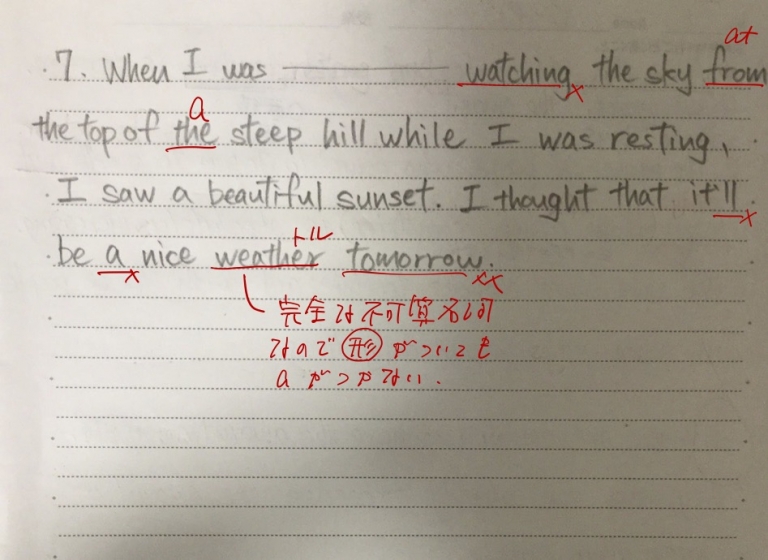 at
7. When I was ———— watching the sky from
a
the top of the steep hill while I was resting,
I saw a beautiful sunset. I thought that it'll
be a nice weather tomorrow.
トル
完全な不可算名詞
なので形がついても
aがつかない.